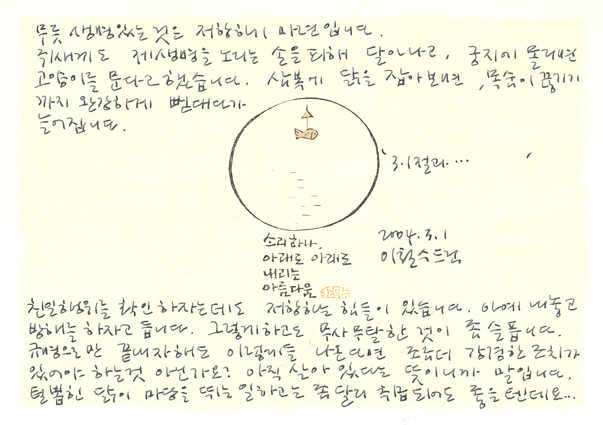 무릇 생명있는 것은 저항하기 마련입니다.
쥐새끼도 제 생명을 노리는 손을 피해 달아나고, 궁지에 몰리면
고양이를 문다고 했습니다. 삼복에 닭을 잡아보면, 목숨이 끊기기
까지 완강하게 뻗대다가
늘어집니다.
3.1절과...
소리하나.
아래로 아래로
내리는
아름다움
2004.3.1
이철수드림
친일행위를 확인하자는데도 저항하는 힘들이 있습니다. 아예 내놓고
방해를 하자고 듭니다. 그렇게하고도 무사무탈한 것이 좀 슬픕니다.
규명으로만 끝내자해도 이렇게들 나온다면 조금더 강경한 조치가
있어야 하는것 아닌가요? 아직 살아 있다는 뜻이니까 말입니다.
털뽑힌 닭이 마당을 뛰는 일하고는 좀 달리 취급되어도 좋을텐데요...